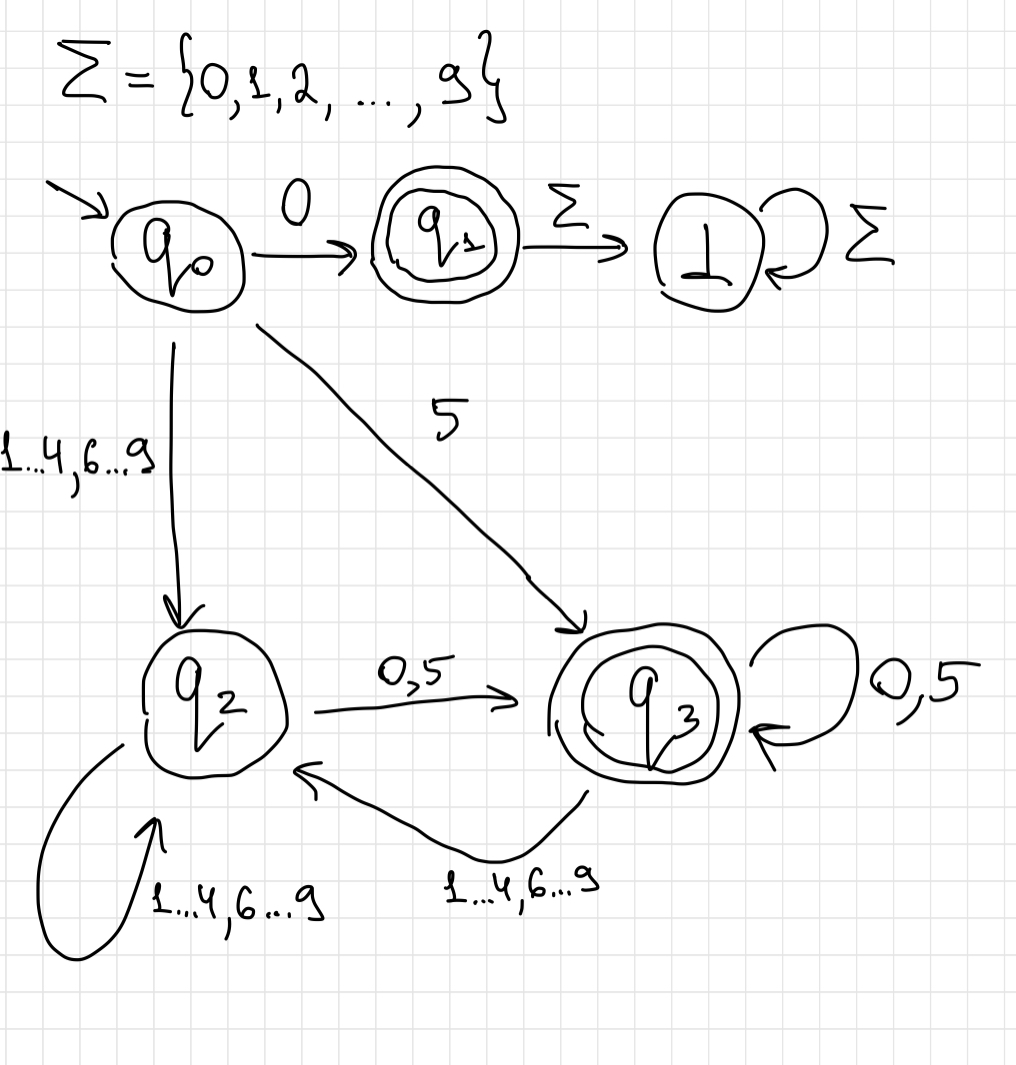 Σ = {0,1,2, ..., 9}
q0
0
q1
Σ
⊥
Σ
5
1...4,6...9
q2
0,5
q3
0,5
1...4,6...9
1...4,6...9